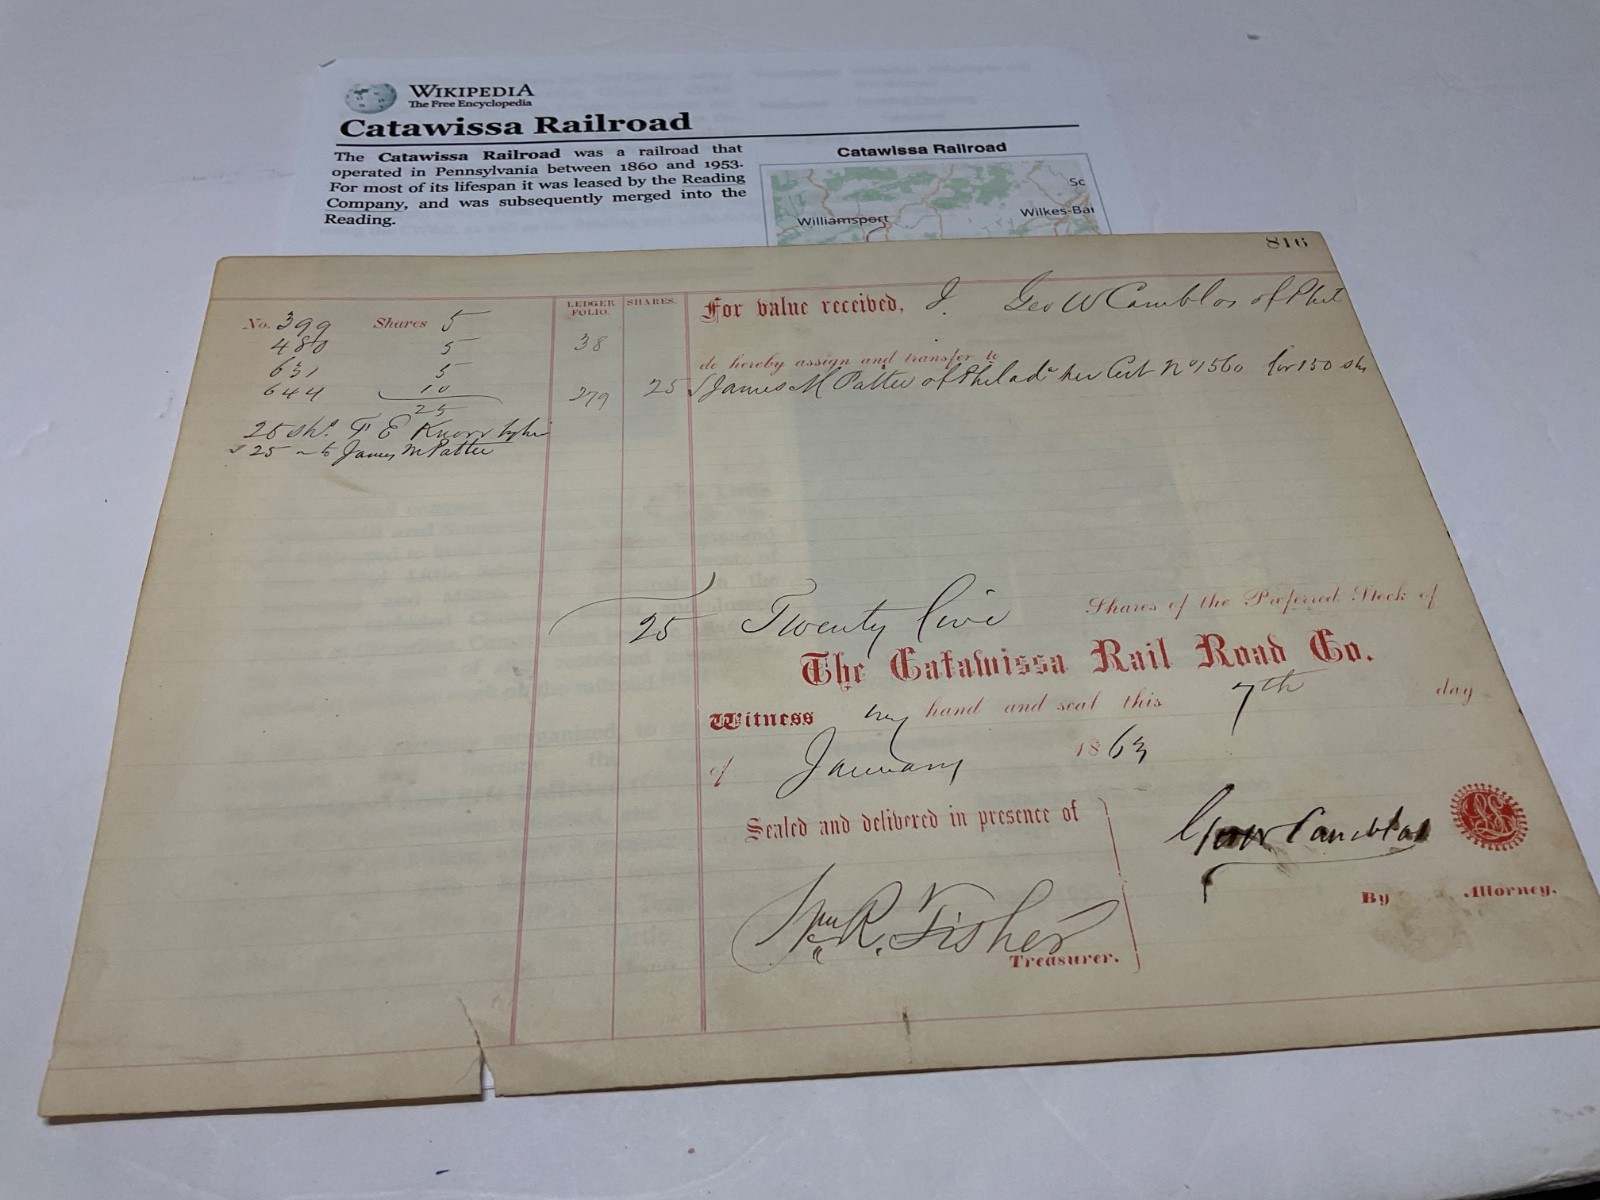 WIKIPEDIA
The Free Encyclopedia
Catawissa Railroad
The Catawissa Railroad was a railroad that
operated in Pennsylvania between 1860 and 1953.
For most of its lifespan it was leased by the Reading
Company, and was subsequently merged into the
Reading.
Catawissa Railroad
Sc
Williamsport
Wilkes-Bar
816
LEDGER FOLIO.
SHARES.
For value received, I. Geo W Camblos of Phil
No. 399 Shares 5
480 5
38
do hereby assign and transfer to
631 5
644 10
279
25 James M Patter of Philada her Cert No 1560 for 150 sh
25
25 shs. F E Knorr
25 to James M Patter
25 Twenty five Shares of the Preferred Stock of
The Catawissa Rail Road Co.
Witness my hand and seal this 7th day
of January 1863
Sealed and delivered in presence of
Geo W Camblos
LS
By Attorney.
Wm R. Fisher
Treasurer.